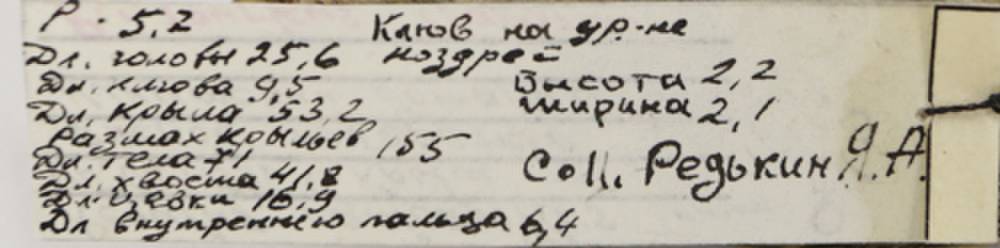 Р. 5,2
Дл. головы 25,6
Дл. клюва 9,5
Дл. крыла 53,2
Размах крыльев 155
Дл. тела 71
Дл. хвоста 41,8
Дл. цевки 16,9
Дл внутреннего пальца 6,4
Клюв на ур-не
ноздрей
Высота 2,2
ширина 2,1
Coll. Редькин Я.А.